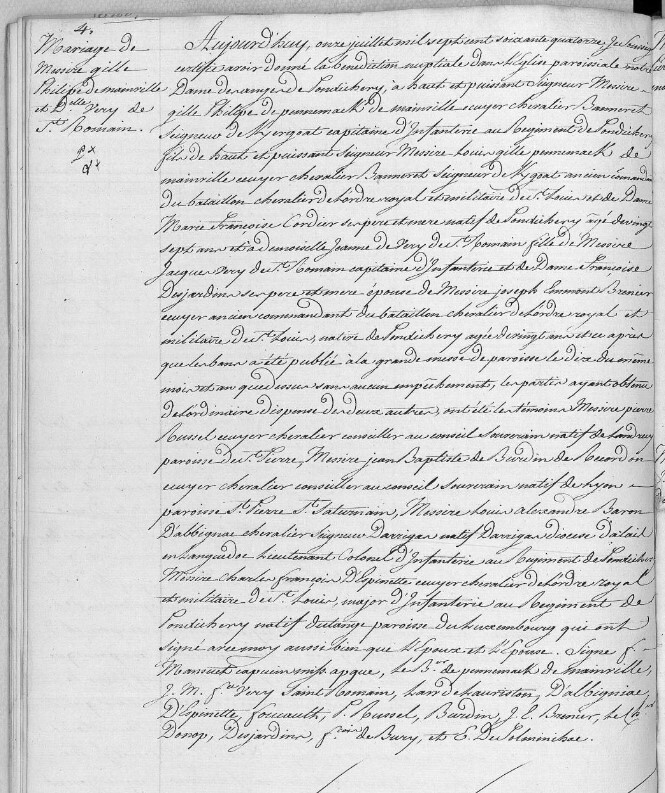 4.
Mariage de
Messire gille
Philipe de mainville
et D.lle Very de
S.t Romain.
Aujourd'huy, onze juillet mil sept cent soixante quatorze, Je soussigné
certifie avoir donné la benediction nuptiale dans l'Eglise paroissiale notre
Dame des anges de Pondichery, à haut et puissant Seigneur Messire
gille Philipe de penmemack de mainville ecuyer chevalier Banneret
Seigneur de Kergoat capitaine d'Infanterie au Regiment de Pondichery
fils de haut et puissant Seigneur Messire Louis gille penmemack de
mainville ecuyer chevalier Banneret Seigneur de Kygoat ancien comandan
du bataillon chevalier de l'ordre royal et militaire de S.t Louis et de Dame
Marie Françoise Cordier ses pere et mere natif de Pondichery agé de vingt
sept ans et à demoiselle Jeanne de Very de S.t Romain fille de Messire
Jacque Very de S.t Romain capitaine d'Infanterie et de Dame Françoise
Desjardins ses pere et mere épouse de Messire joseph Brenier
ecuyer ancien commandant du bataillon chevalier de l'ordre royal et
militaire de S.t Louis, native de Pondichery agée de vingt ans et ce après
que les bans a été publié à la grande messe de paroisse le dix du même
mois et an que dessus sans aucun empêchement, les partis ayant obtenu
de l'ordinaire dispense des deux autres, ont été les témoins Messire pierre
Russel ecuyer chevalier conseiller au conseil Souverain natif de Londres
paroisse de S.t Pierre, Messire jean Baptiste de Burdin de
ecuyer chevalier conseiller au conseil souverain natif de Lyon
paroisse S.t Pierre S.t Saturnain, Messire Louis alexandre Baron
D'albignac chevalier Seigneur Darrigas natif Darrigas diocese d'alait
en Languedoc Lieutenant Colonel d'Infanterie au Regiment de Pondichery
Messire Charles françois D'Epinette ecuyer chevalier de l'ordre royal
et militaire de S.t Louis, major d'Infanterie au Regiment de
Pondichery natif paroisse du Luxembourg qui ont
signé avec moy aussi bien que l'Epoux et l'Epouse. Signé f.
Mansuet capucin miss. apque, le B.on de penmemack de mainville,
J. M. f. Very Saint Romain, Law de Lauriston, D'albigniac,
D'Epinette, foucault, P. Russel, Burdin, J. E. Brenier, le
Donop, Desjardins, f. de Bury, et E. De Solminihac.